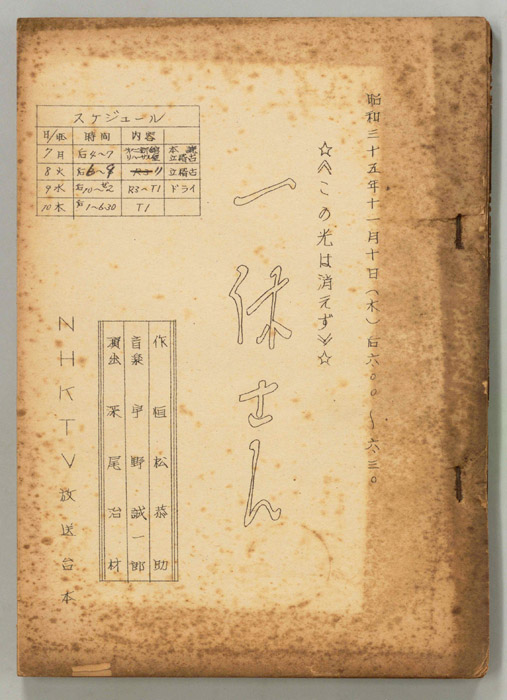 昭和三十五年十一月十日(木)后六.〇〇〜六.三〇
☆《この光は消えず》☆
一休さん
作 恒松恭助
音楽 宇野誠一郎
演出 深尾治材
スケジュール
日/曜 時間 内容
7月 后4〜7 本読 立稽古
8火 后6〜9 立稽古
9水 R3〜T1 ドライ
10木 后1〜6.30 T1
NHKTV放送台本